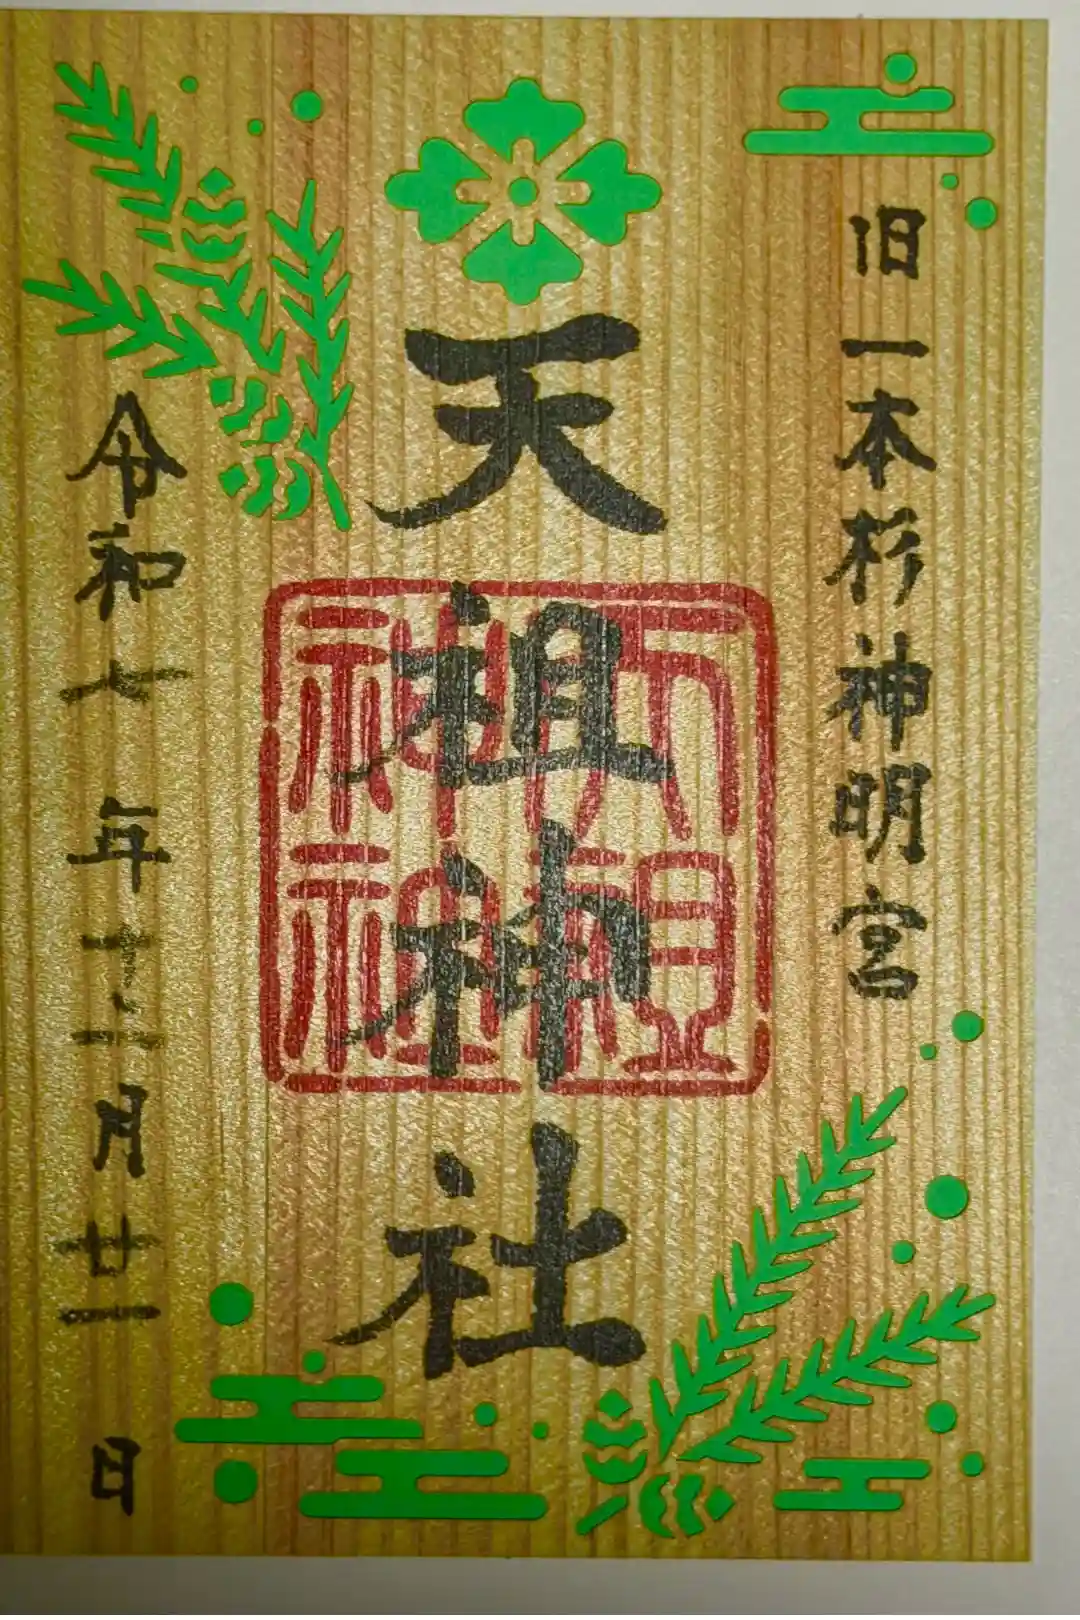 旧一本杉神明宮
天祖神社
天祖
神社
令和七年十二月廿一日